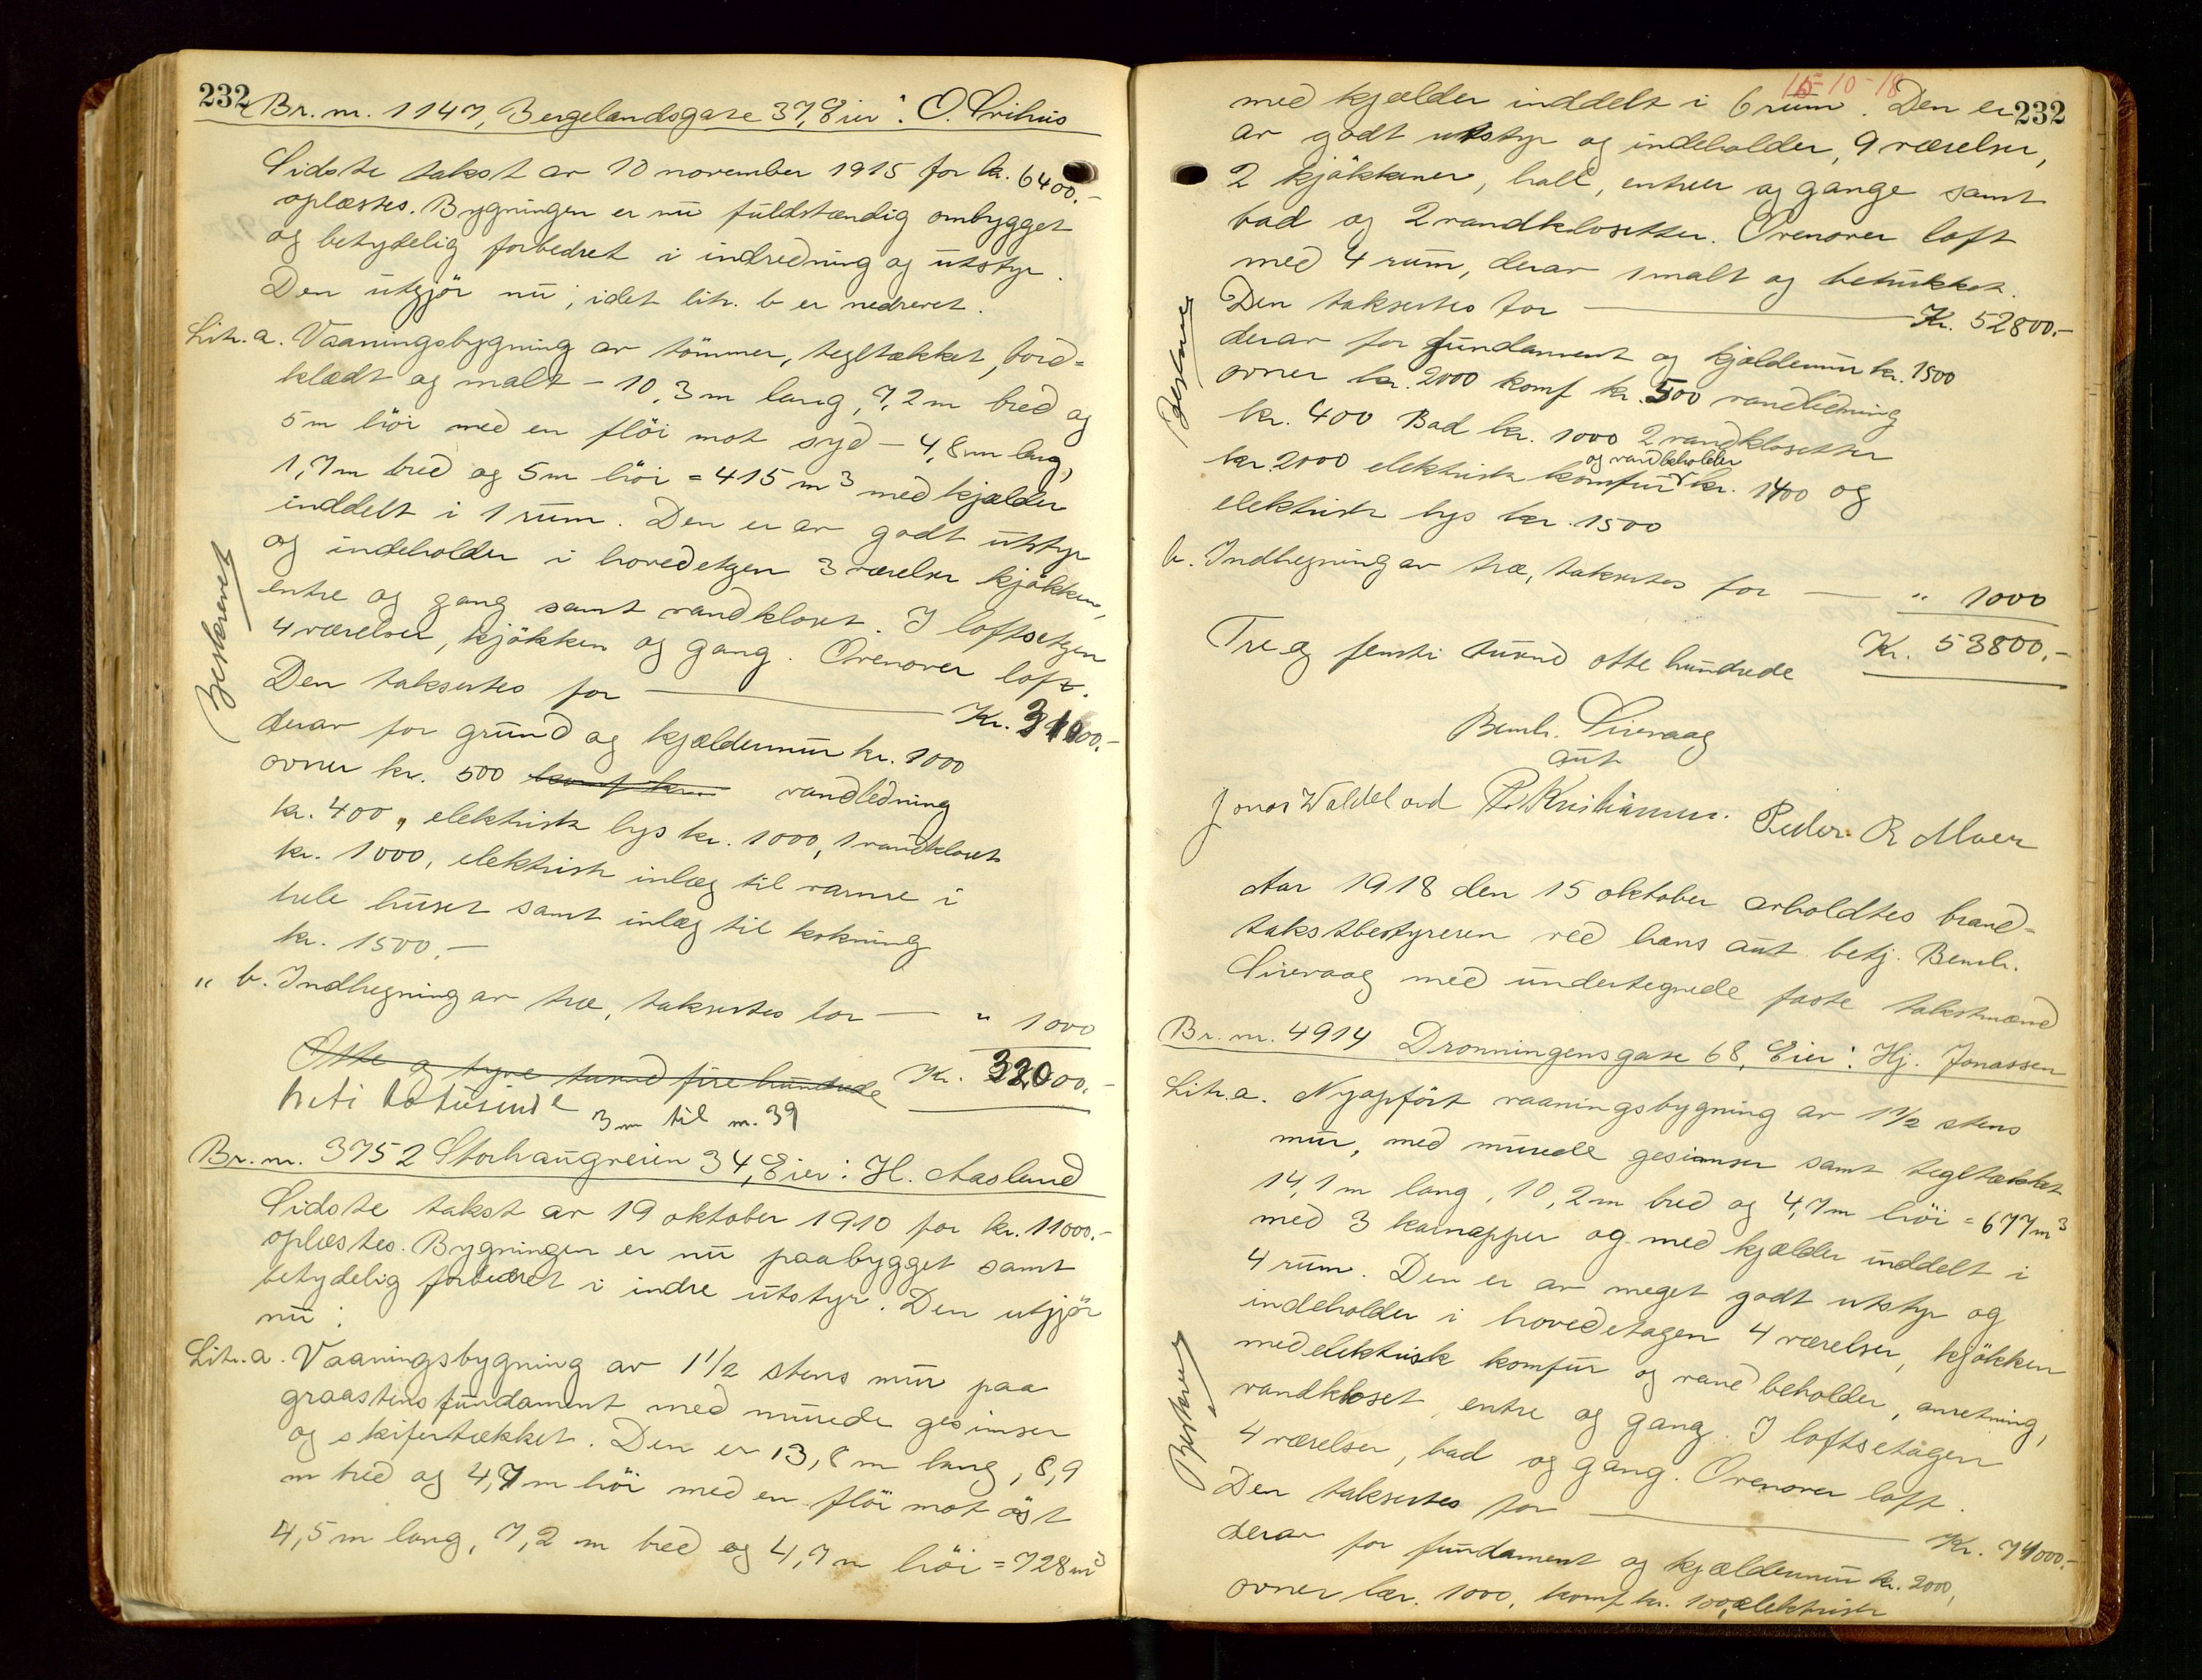 232
Br. nr. 1147, Bergelandsgate 37, Eier: O.
Sidste takst av 10 november 1915 for kr. 6400.-
oplæstes. Bygningen er nu fuldstændig ombygget
og betydelig forbedret i indredning og utstyr.
Den utgjör nu, idet litr. b er nedrevet.
Litr. a. Vaaningsbygning av tömmer, tegltækket, bord-
klædt og malt - 10,3 m lang, 7,2 m bred og
5 m höi med en flöi mot syd - 4,8 m lang,
1,7 m bred og 5 m höi = 415 m³ med kjælder
inddelt i 1 rum. Den er av godt utstyr
og indeholder i hovedetgen 3 værelser kjökken,
entre og gang samt vandkloset. I loftsetgen
4 værelser, kjökken og gang. Ovenover loft.
Beskrevet
Den taksertes for — Kr. 31000.-
derav for grund og kjældermur kr. 1000
ovner kr. 500 komf kr. vandledning
kr. 400, elektrisk lys kr. 1000, 1 vandkloset
kr. 1000, elektrisk inlæg til varme i
hele huset samt inlæg til kokning
kr. 1500.-
" b. Indhegning av træ, taksertes for — " 1000
Otte og tyve tusend fire hundrede Kr. 32000.-
treti to tusinde
3 m til nr. 39
Br. nr. 3752 Storhaugveien 34, Eier: H. Aasland
Sidste takst av 19 oktober 1910 for kr. 11000.-
oplæstes. Bygningen er nu paabygget samt
betydelig forbedret i indre utstyr. Den utgjör
nu:
Litr. a. Vaaningsbygning av 1 1/2 stens mur paa
graastens fundament med murede gesimser
og skifertækket. Den er 13,8 m lang, 8,9
m bred og 4,7 m höi med en flöi mot öst
4,5 m lang, 7,2 m bred og 4,7 m höi = 728 m³
15-10-18
232
med kjælder inddelt i 6 rum. Den er
av godt utstyr og indeholder, 9 værelser,
2 kjökkener, hall, entreer og gange samt
bad og 2 vandklosetter. Ovenover loft
med 4 rum, derav 1 malt og betrukket.
Den taksertes for — Kr. 52800.-
derav for fundament og kjældermur kr. 1500
ovner kr. 2000 komf kr. 500 vandledning
kr. 400 Bad kr. 1000 2 vandklosetter
og vandbeholder
kr. 2000 elektrisk komfur kr. 1400 og
elektrisk lys kr. 1500
b. Indhegning av træ, taksertes for — " 1000
Tre og femti tusend otte hundrede Kr. 53800.-
Bernh. Sirevaag
aut
Jonas Waldeland P. Kristiansen. Peder R Moen
Aar 1918 den 15 oktober avholdtes brand-
takstbestyreren ved hans aut. betj. Bernh.
Sirevaag med undertegnede faste takstmænd
Br. nr. 4914 Dronningensgate 68, Eier: Hj. Jonassen
Litr. a. Nyopfört vaaningsbygning av 1 1/2 stens
mur, med murede gesimser samt tegltækket
14,1 m lang, 10,2 m bred og 4,7 m höi = 677 m³
med 3 karnapper og med kjælder inddelt i
4 rum. Den er av meget godt utstyr og
indeholder i hovedetagen 4 værelser, kjökken
med elektrisk komfur og vandbeholder, anretning,
vandkloset, entre og gang. I loftsetagen
4 værelser, bad og gang. Ovenover loft.
Den taksertes for — Kr. 74000.-
derav for fundament og kjældermur kr. 2000,
ovner kr. 1000, komf kr. 100, elektrisk